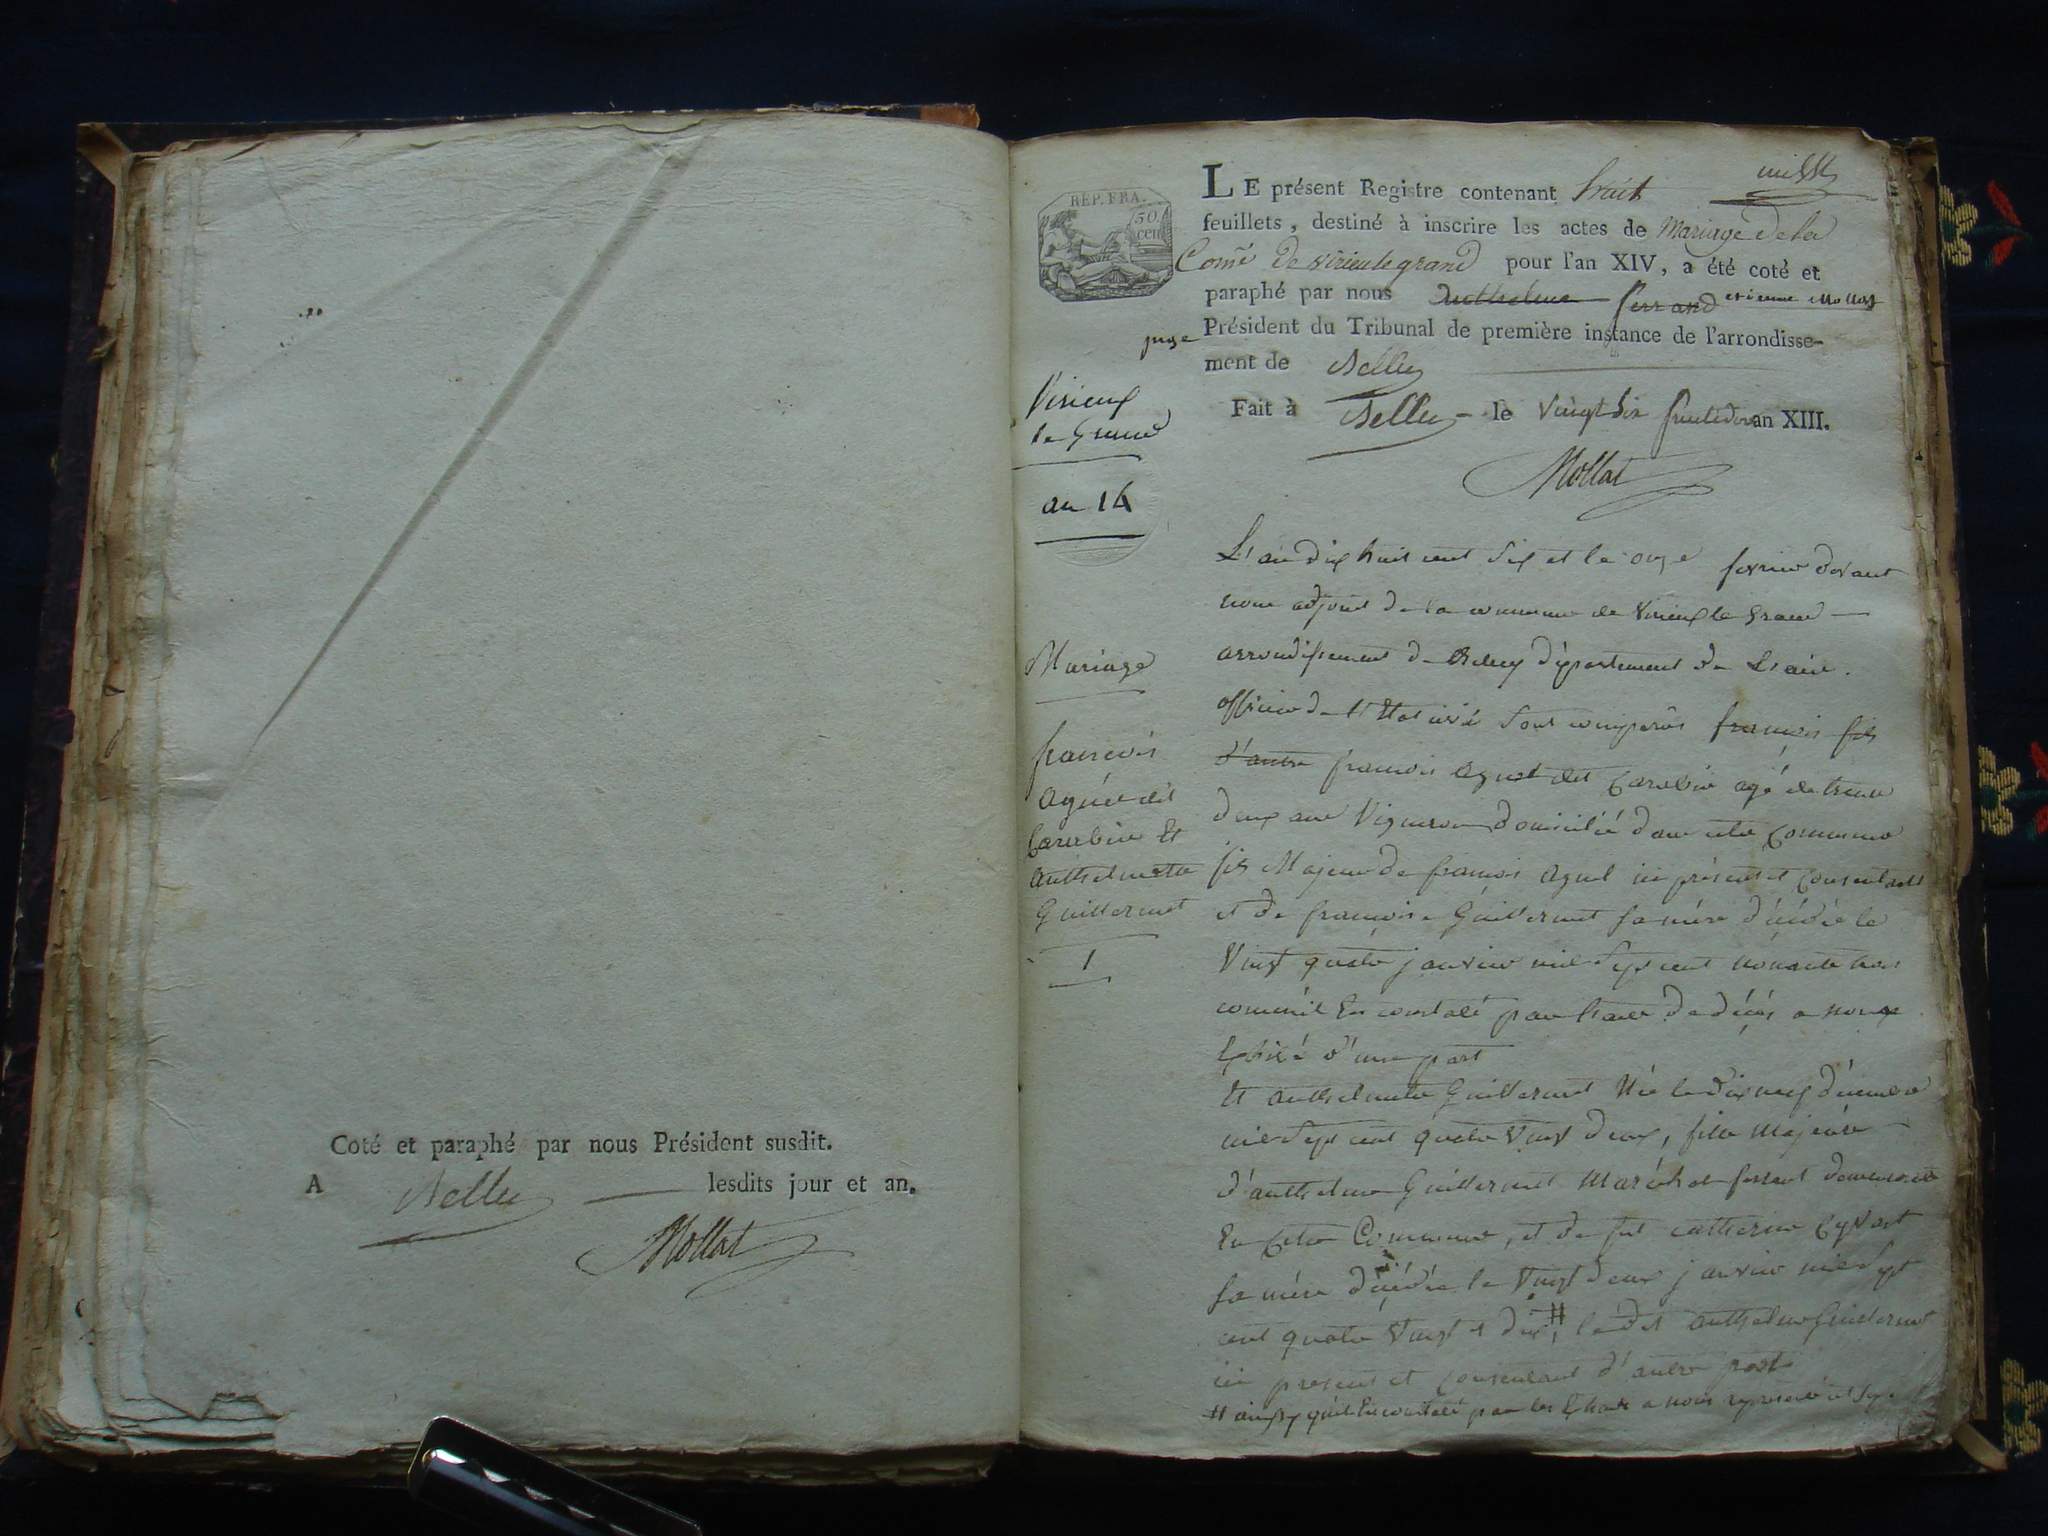 Coté et paraphé par nous Président susdit.
A Belley lesdits jour et an.
Mollat
REP. FRA.
50 cen
LE présent Registre contenant huit
feuillets, destiné à inscrire les actes de Mariage de la
Comñe de virieu le grand pour l'an XIV, a été coté et
paraphé par nous Anthelme ferrand etienne Mollat
juge Président du Tribunal de première instance de l'arrondisse-
ment de Belley
Fait à Belley le vingt six fructidor an XIII.
Mollat
Virieux
le Grand
an 14
Mariage
francois
Aguet dit
Carabin Et
anthelmette
Guillermet
1
L'an dix huit cent six et le onze fevrier devant
nous adjoint de la commune de virieux le grand
arrondissement de Belley département de L'ain.
officier de l'Etat civil sont comparus francois fils
d'autre francois Aguet dit Carabin agé de trente
deux ans Vigneron domicilié dans cette Commune
fils Majeur de francois Aguet ici présent et Consentant
et de francoise Guillermet sa mére décédée le
Vingt quatre janvier mil sept cent nonante trois
comme il Est constaté par l'acte de décés a nous
Exhibé d'une part
Et anthelmette Guillermet Née le dix neuf décembre
mil sept cent quatre vingt deux, fille Majeure
d'anthelme Guillermet Maréchal ferrant demeurant
En Cette Commune, et de fut catherine
sa mére décédée le Vingt deux janvier mil sept
cent quatre vingt dix #, le dit anthelme Guillermet
ici present et Consentant d'autre part
# ainsy qu'il Est constaté par les Extraits a nous representé